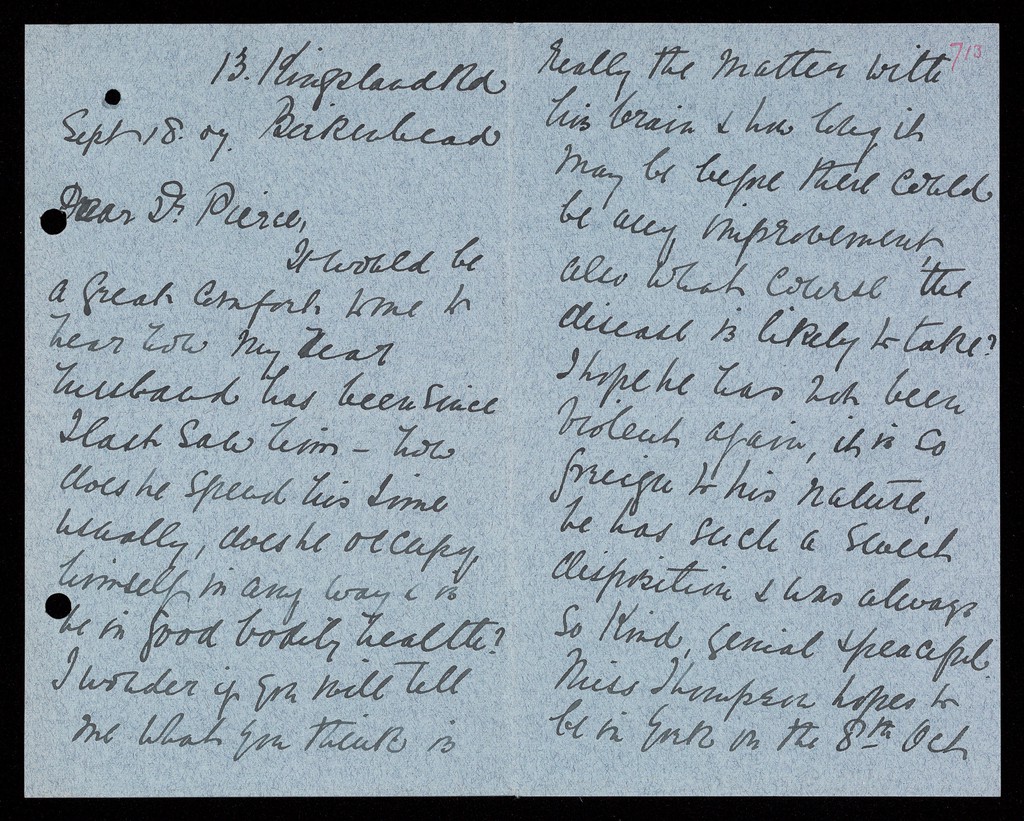 13. Kingsland Rd
Sept 18. 07. Birkenhead
Dear Dr Pierce,
It would be
a great comfort to me to
hear how my dear
husband has been since
I last saw him – how
does he spend his time
usually, does he occupy
himself in any way & is
he in good bodily health?
I wonder if you will tell
me what you think is
713
really the matter with
his brain & how long it
may be before there could
be any improvement,
also what course the
disease is likely to take?
I hope he has not been
violent again, it is so
foreign to his nature,
he has such a sweet
disposition & was always
so kind, genial & peaceful.
Miss Thompson hopes to
be in York on the 8th Oct